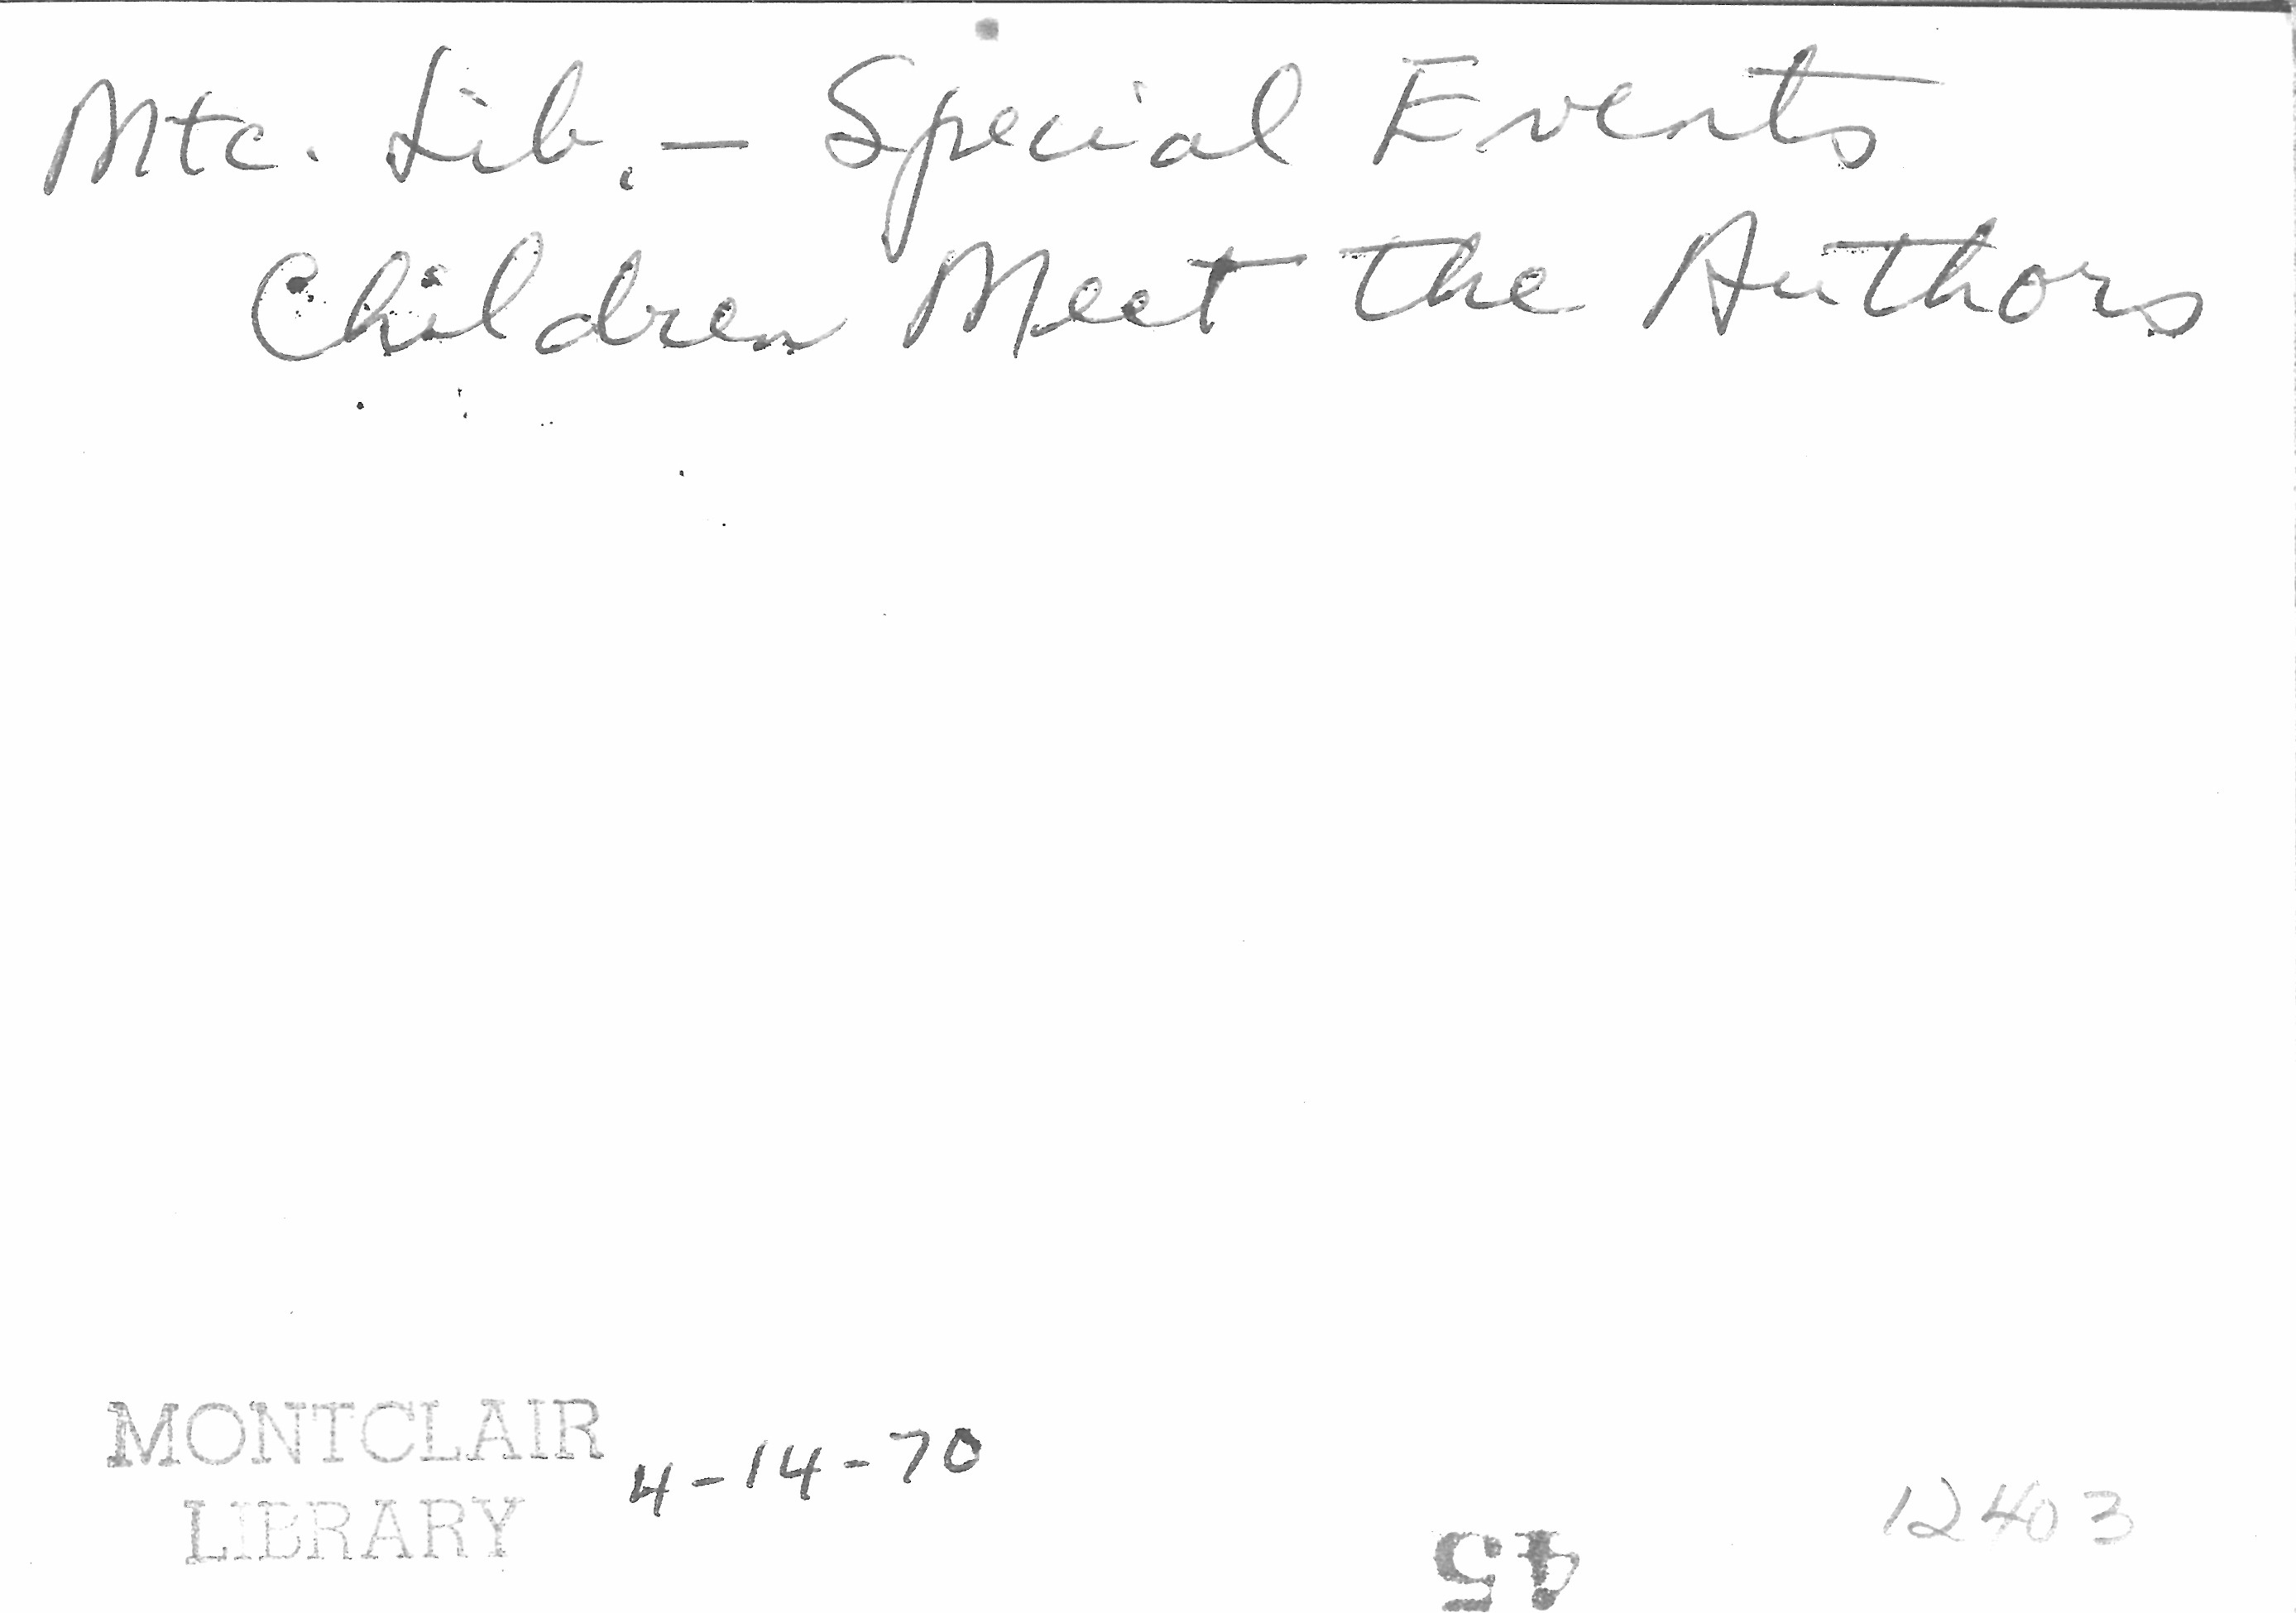 Mtc. Lib. – Special Events
Children Meet the Authors
MONTCLAIR
LIBRARY
4-14-70
12403